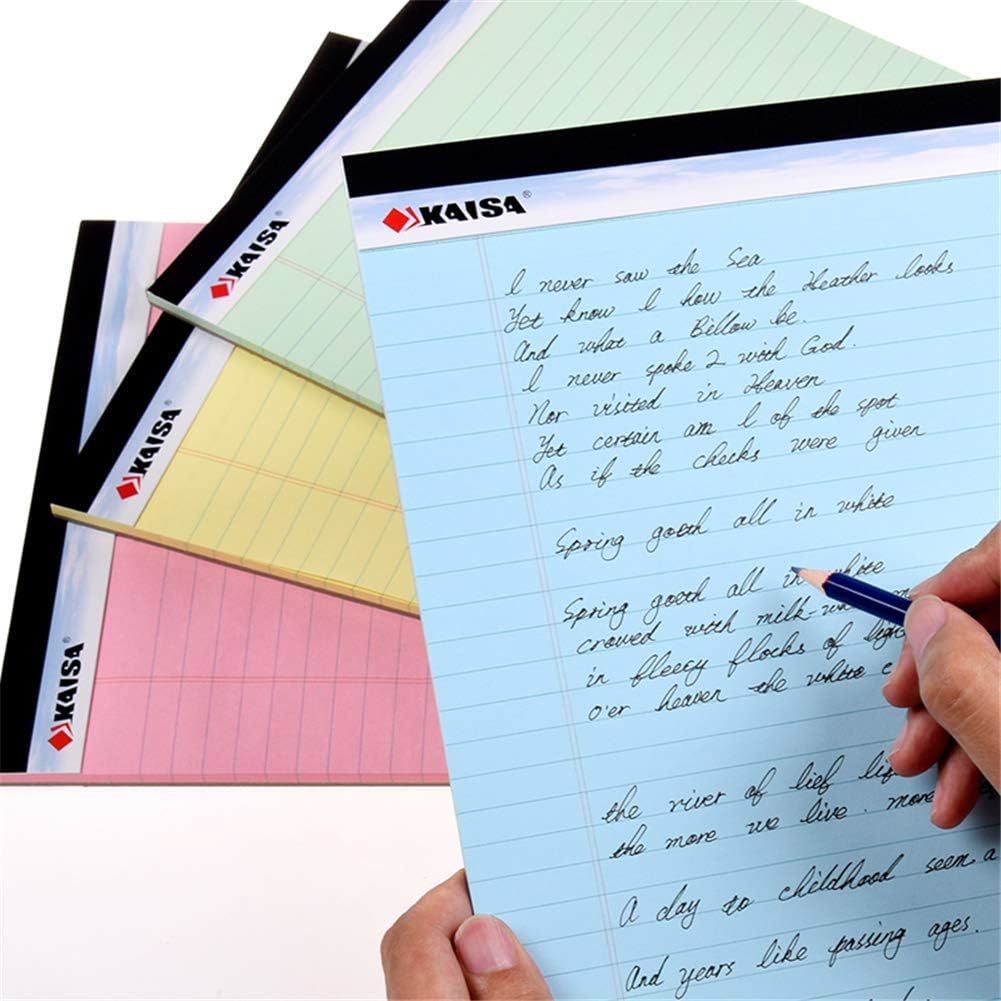 KAISA®
KAISA®
KAISA®
KAISA®
I never saw the Sea
Yet know I how the Heather looks
And what a Billow be.
I never spoke 2 with God.
Nor visited in Heaven
Yet certain am I of the spot
As if the checks were given
Spring goeth all in white
Spring goeth all in white
crowed with milk-
in fleecy flocks of
o'er heaven the white
the river of lief
the more we live. more
A day to childhood seem a
And years like passing ages.